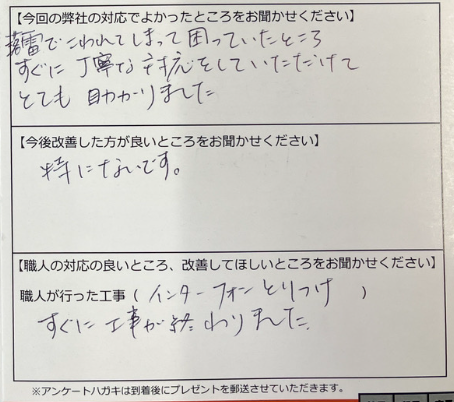 【今回の弊社の対応でよかったところをお聞かせください】
落雷でこわれてしまって困っていたところ
すぐに丁寧な対応をしていただけて
とても助かりました
【今後改善した方が良いところをお聞かせください】
特にないです。
【職人の対応の良いところ、改善してほしいところをお聞かせください】
職人が行った工事（インターフォンとりつけ）
すぐに工事が終わりました。
※アンケートハガキは到着後にプレゼントを郵送させていただきます。